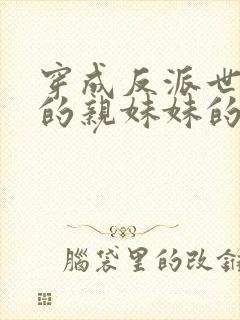 穿成反派世
的親妹妹的
腦袋里的改